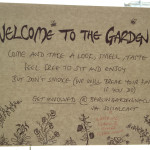 WELCOME TO THE GARDEN
COME AND TAKE A LOOK, SMELL, TASTE
FEEL FREE TO SIT AND ENJOY
BUT DON'T SMOKE (WE WILL BREAK YOUR
IF YOU DO)
GET INVOLVED @